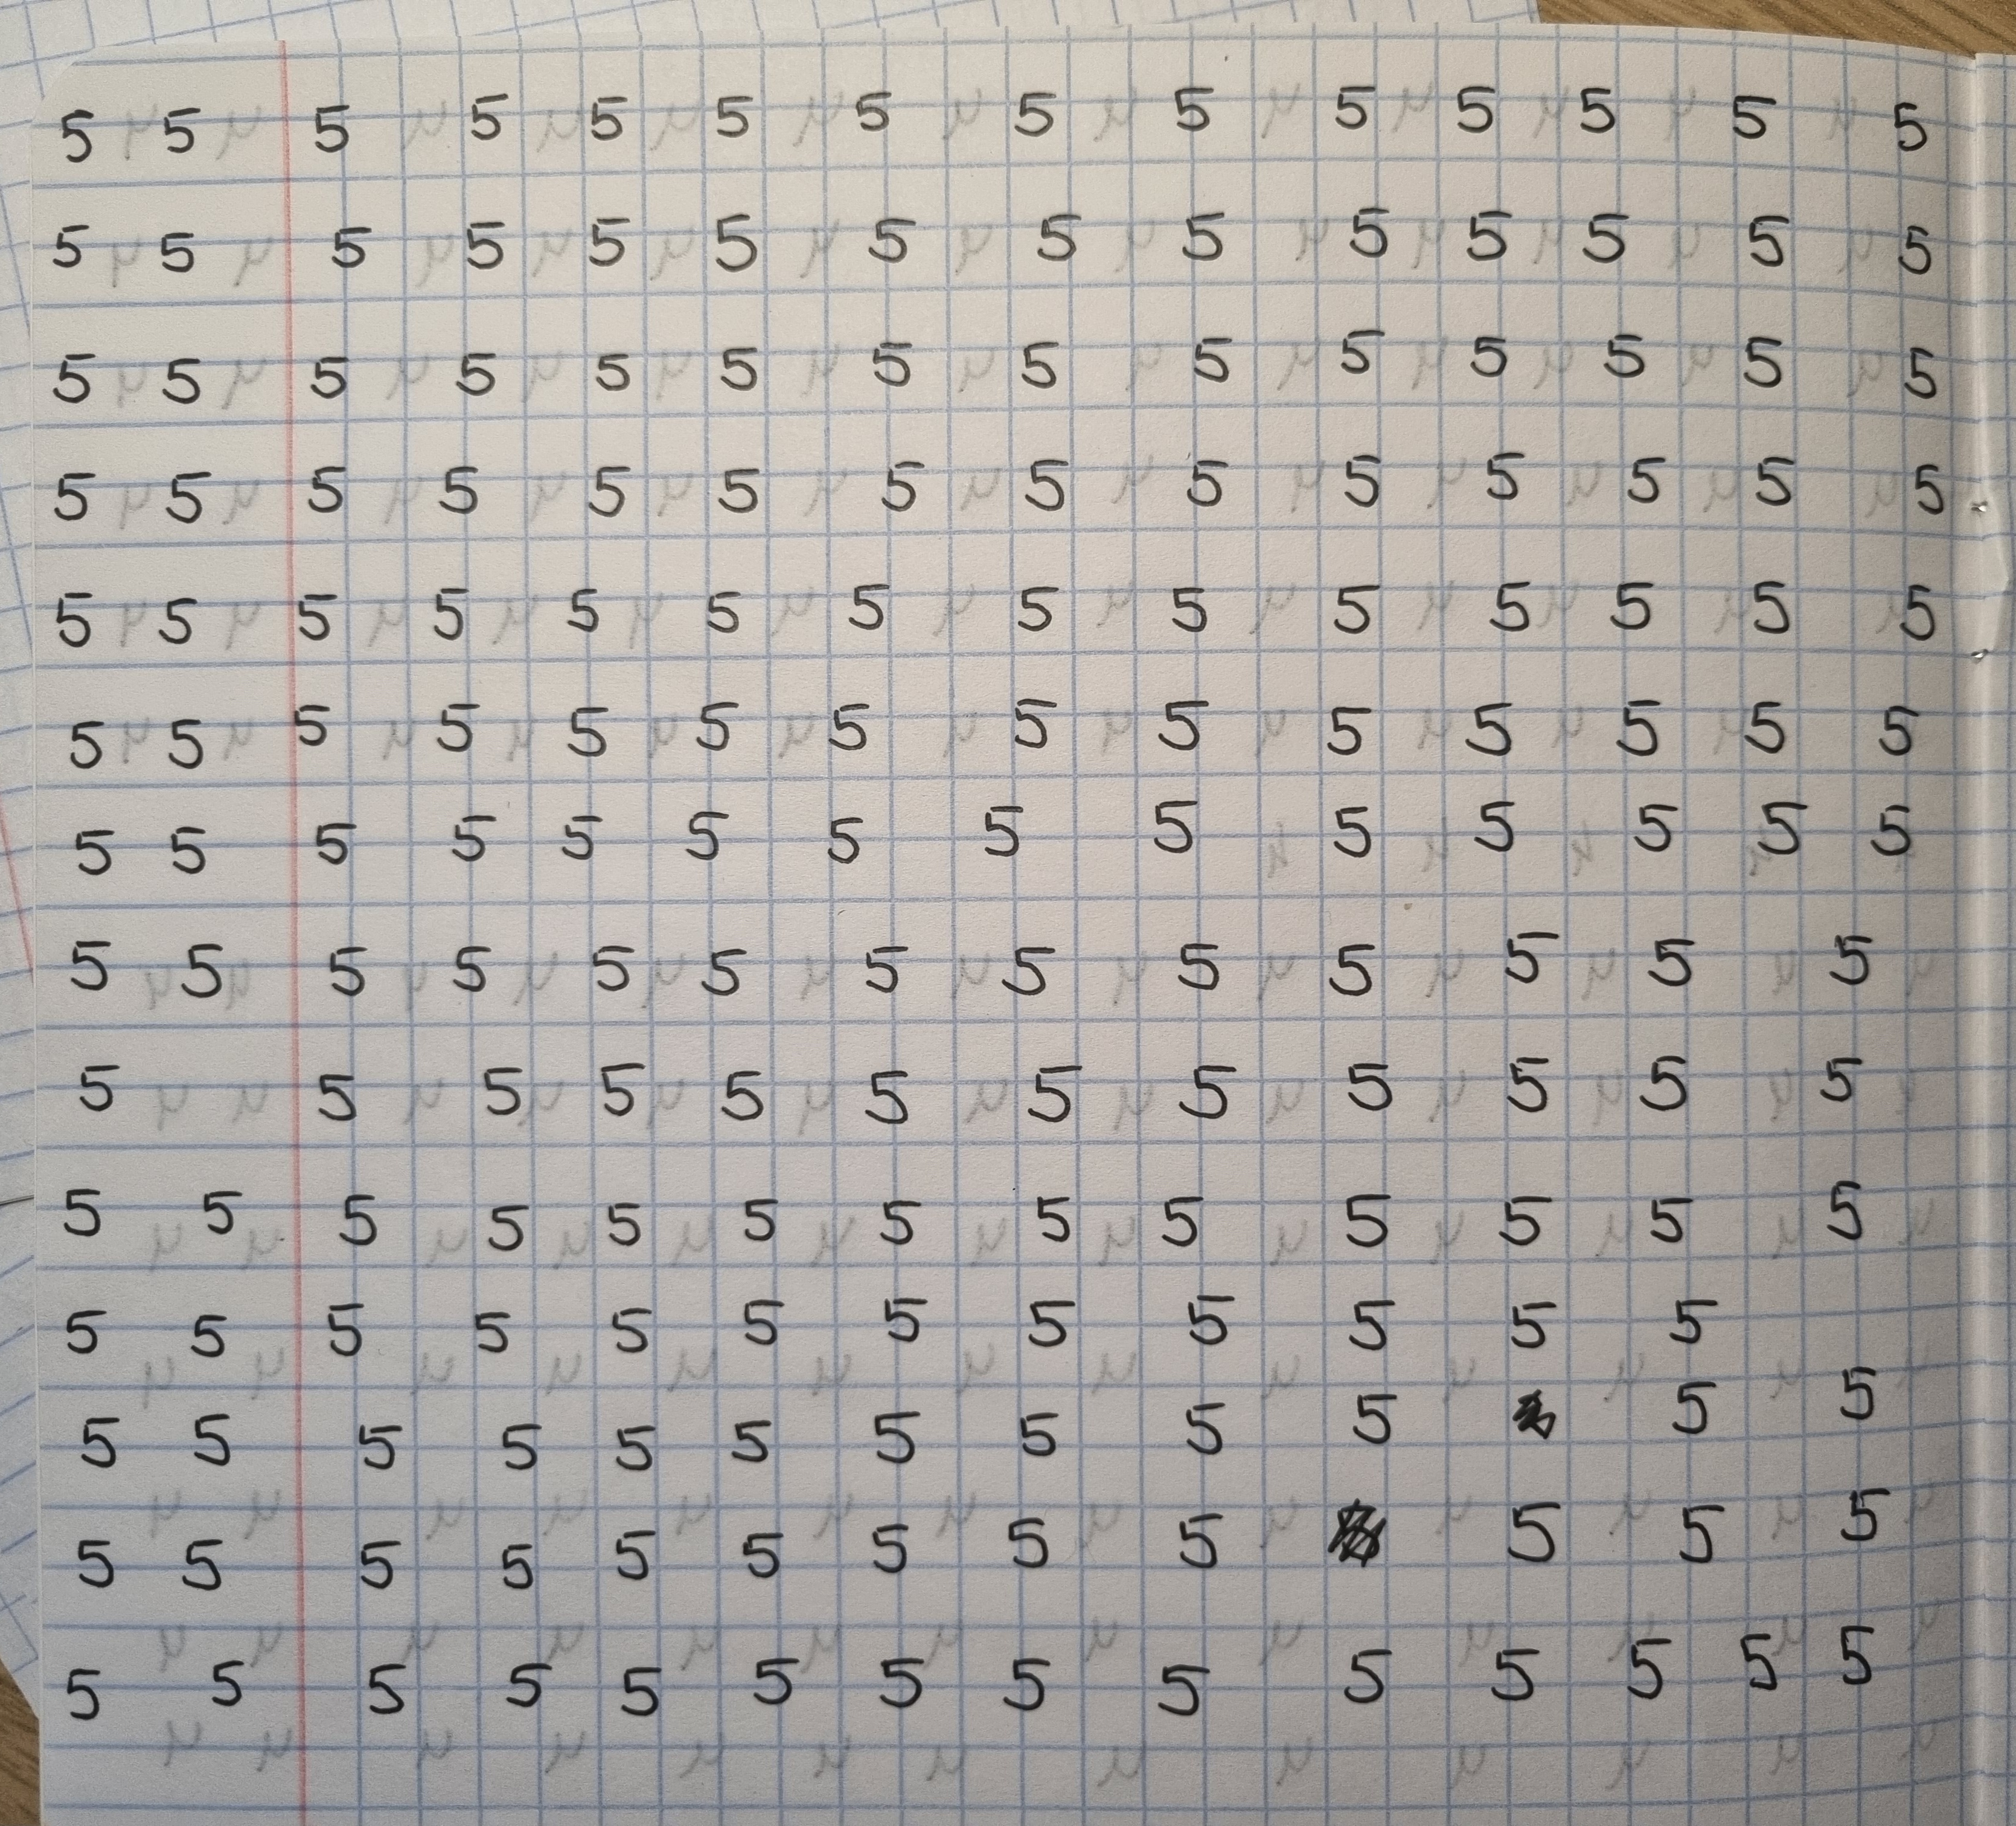 5 5 5 5 5 5 5 5 5 5 5 5 5 5
5 5 5 5 5 5 5 5 5 5 5 5 5 5
5 5 5 5 5 5 5 5 5 5 5 5 5 5
5 5 5 5 5 5 5 5 5 5 5 5 5 5
5 5 5 5 5 5 5 5 5 5 5 5 5 5
5 5 5 5 5 5 5 5 5 5 5 5 5 5
5 5 5 5 5 5 5 5 5 5 5 5 5 5
5 5 5 5 5 5 5 5 5 5 5 5 5
5 5 5 5 5 5 5 5 5 5 5 5
5 5 5 5 5 5 5 5 5 5 5 5 5
5 5 5 5 5 5 5 5 5 5 5 5
5 5 5 5 5 5 5 5 5 5 5 5
5 5 5 5 5 5 5 5 5 5 5 5
5 5 5 5 5 5 5 5 5 5 5 5 5 5